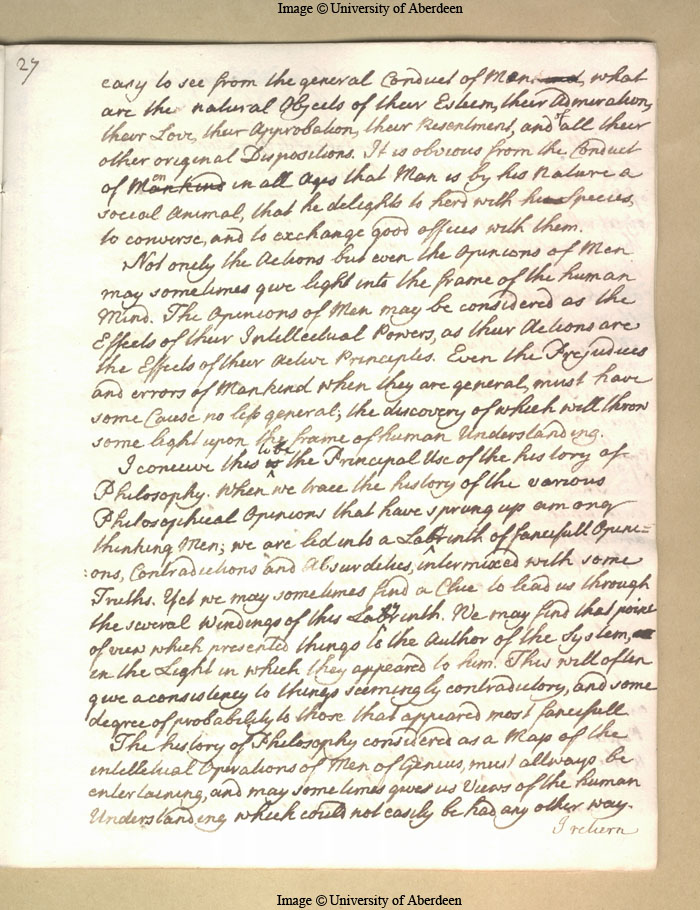 Image © University of Aberdeen
27
easy to see from the general Conduct of Men and, what
are the natural Objects of their Esteem, their Admiration,
their Love, their Approbation, their Resentment, and of all their
other original Dispositions. It is obvious from the Conduct
of Mankind en in all Ages that Man is by his Nature a
social Animal, that he delights to herd with his Species,
to converse, and to exchange good offices with them.
Not onely the Actions but even the Opinions of Men
may sometimes give light into the frame of the human
Mind. The Opinions of Men may be considered as the
Effects of their Intellectual Powers, as their Actions are
the Effects of their Active Principles. Even the Prejudices
and errors of Mankind when they are general, must have
some Cause no less general; the discovery of which will throw
some light upon the frame of human Understanding.
I conceive this is to be the Principal Use of the history of
Philosophy. When we trace the history of the various
Philosophical Opinions that have sprung up among
thinking Men; we are led into a Labyrinth of fancifull Opini=
:ons, Contradictions and Absurdities, intermixed with some
Truths. Yet we may sometimes find a Clue to lead us through
the several windings of this Labyrinth. We may find that point
of view which presented things to the Author of the System,
in the Light in which they appeared to him. This will often
give a consistency to things seemingly contradictory, and some
degree of probability to those that appeared most fancifull
The history of Philosophy considered as a Map of the
intelletual Operations of Men of Genius, must allways be
entertaining, and may sometimes gives us Views of the human
Understanding which could not easily be had any other way.
I return
Image © University of Aberdeen